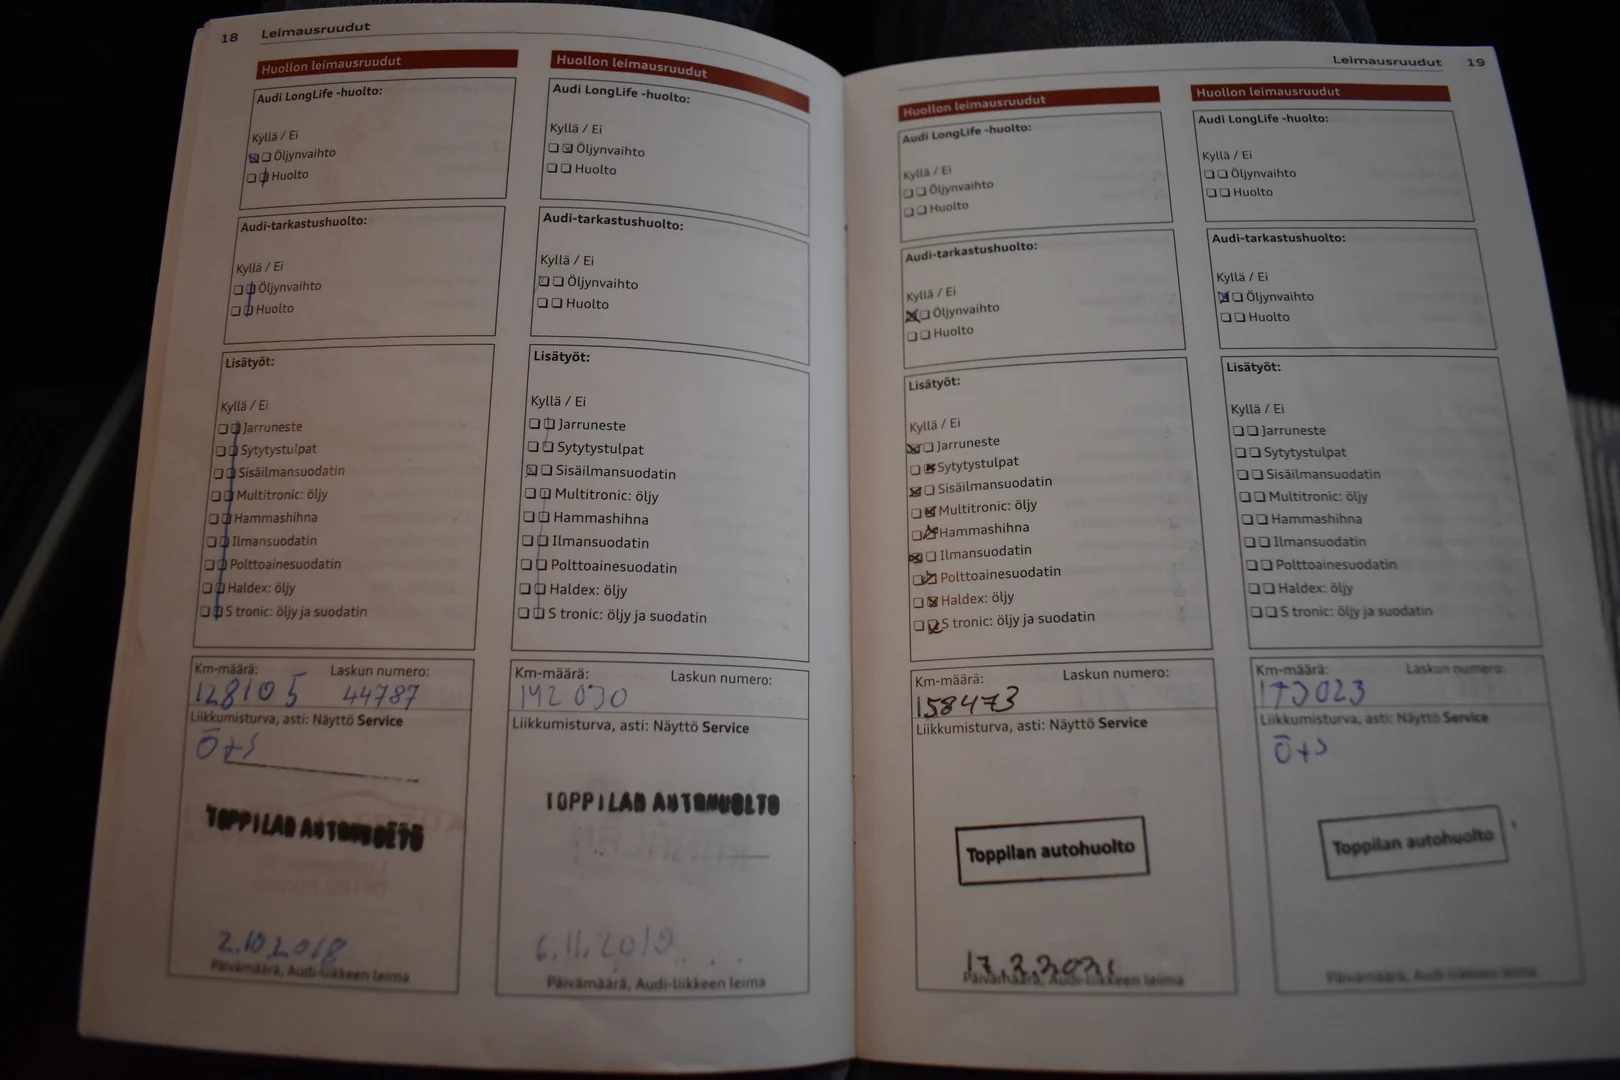 18 Leimausruudut
Huollon leimausruudut
Audi LongLife -huolto:
Kyllä / Ei
Öljynvaihto
Huolto
Audi-tarkastushuolto:
Kyllä / Ei
Öljynvaihto
Huolto
Lisätyöt:
Kyllä / Ei
Jarruneste
Sytytystulpat
Sisäilmansuodatin
Multitronic: öljy
Hammashihna
Ilmansuodatin
Polttoainesuodatin
Haldex: öljy
S tronic: öljy ja suodatin
Km-määrä: Laskun numero:
128105 44787
Liikkumisturva, asti: Näyttö Service
Ö+S
TOPPILAN AUTOHUOLTO
2.10.2018
Päivämäärä, Audi-liikkeen leima
Huollon leimausruudut
Audi LongLife -huolto:
Kyllä / Ei
Öljynvaihto
Huolto
Audi-tarkastushuolto:
Kyllä / Ei
Öljynvaihto
Huolto
Lisätyöt:
Kyllä / Ei
Jarruneste
Sytytystulpat
Sisäilmansuodatin
Multitronic: öljy
Hammashihna
Ilmansuodatin
Polttoainesuodatin
Haldex: öljy
S tronic: öljy ja suodatin
Km-määrä: Laskun numero:
142 030
Liikkumisturva, asti: Näyttö Service
TOPPILAN AUTOHUOLTO
6.11.2019
Päivämäärä, Audi-liikkeen leima
Leimausruudut 19
Huollon leimausruudut
Audi LongLife -huolto:
Kyllä / Ei
Öljynvaihto
Huolto
Audi-tarkastushuolto:
Kyllä / Ei
Öljynvaihto
Huolto
Lisätyöt:
Kyllä / Ei
Jarruneste
Sytytystulpat
Sisäilmansuodatin
Multitronic: öljy
Hammashihna
Ilmansuodatin
Polttoainesuodatin
Haldex: öljy
S tronic: öljy ja suodatin
Km-määrä: Laskun numero:
158473
Liikkumisturva, asti: Näyttö Service
Toppilan autohuolto
17.2.2021
Päivämäärä, Audi-liikkeen leima
Huollon leimausruudut
Audi LongLife -huolto:
Kyllä / Ei
Öljynvaihto
Huolto
Audi-tarkastushuolto:
Kyllä / Ei
Öljynvaihto
Huolto
Lisätyöt:
Kyllä / Ei
Jarruneste
Sytytystulpat
Sisäilmansuodatin
Multitronic: öljy
Hammashihna
Ilmansuodatin
Polttoainesuodatin
Haldex: öljy
S tronic: öljy ja suodatin
Km-määrä: Laskun numero:
173023
Liikkumisturva, asti: Näyttö Service
Ö+S
Toppilan autohuolto
Päivämäärä, Audi-liikkeen leima